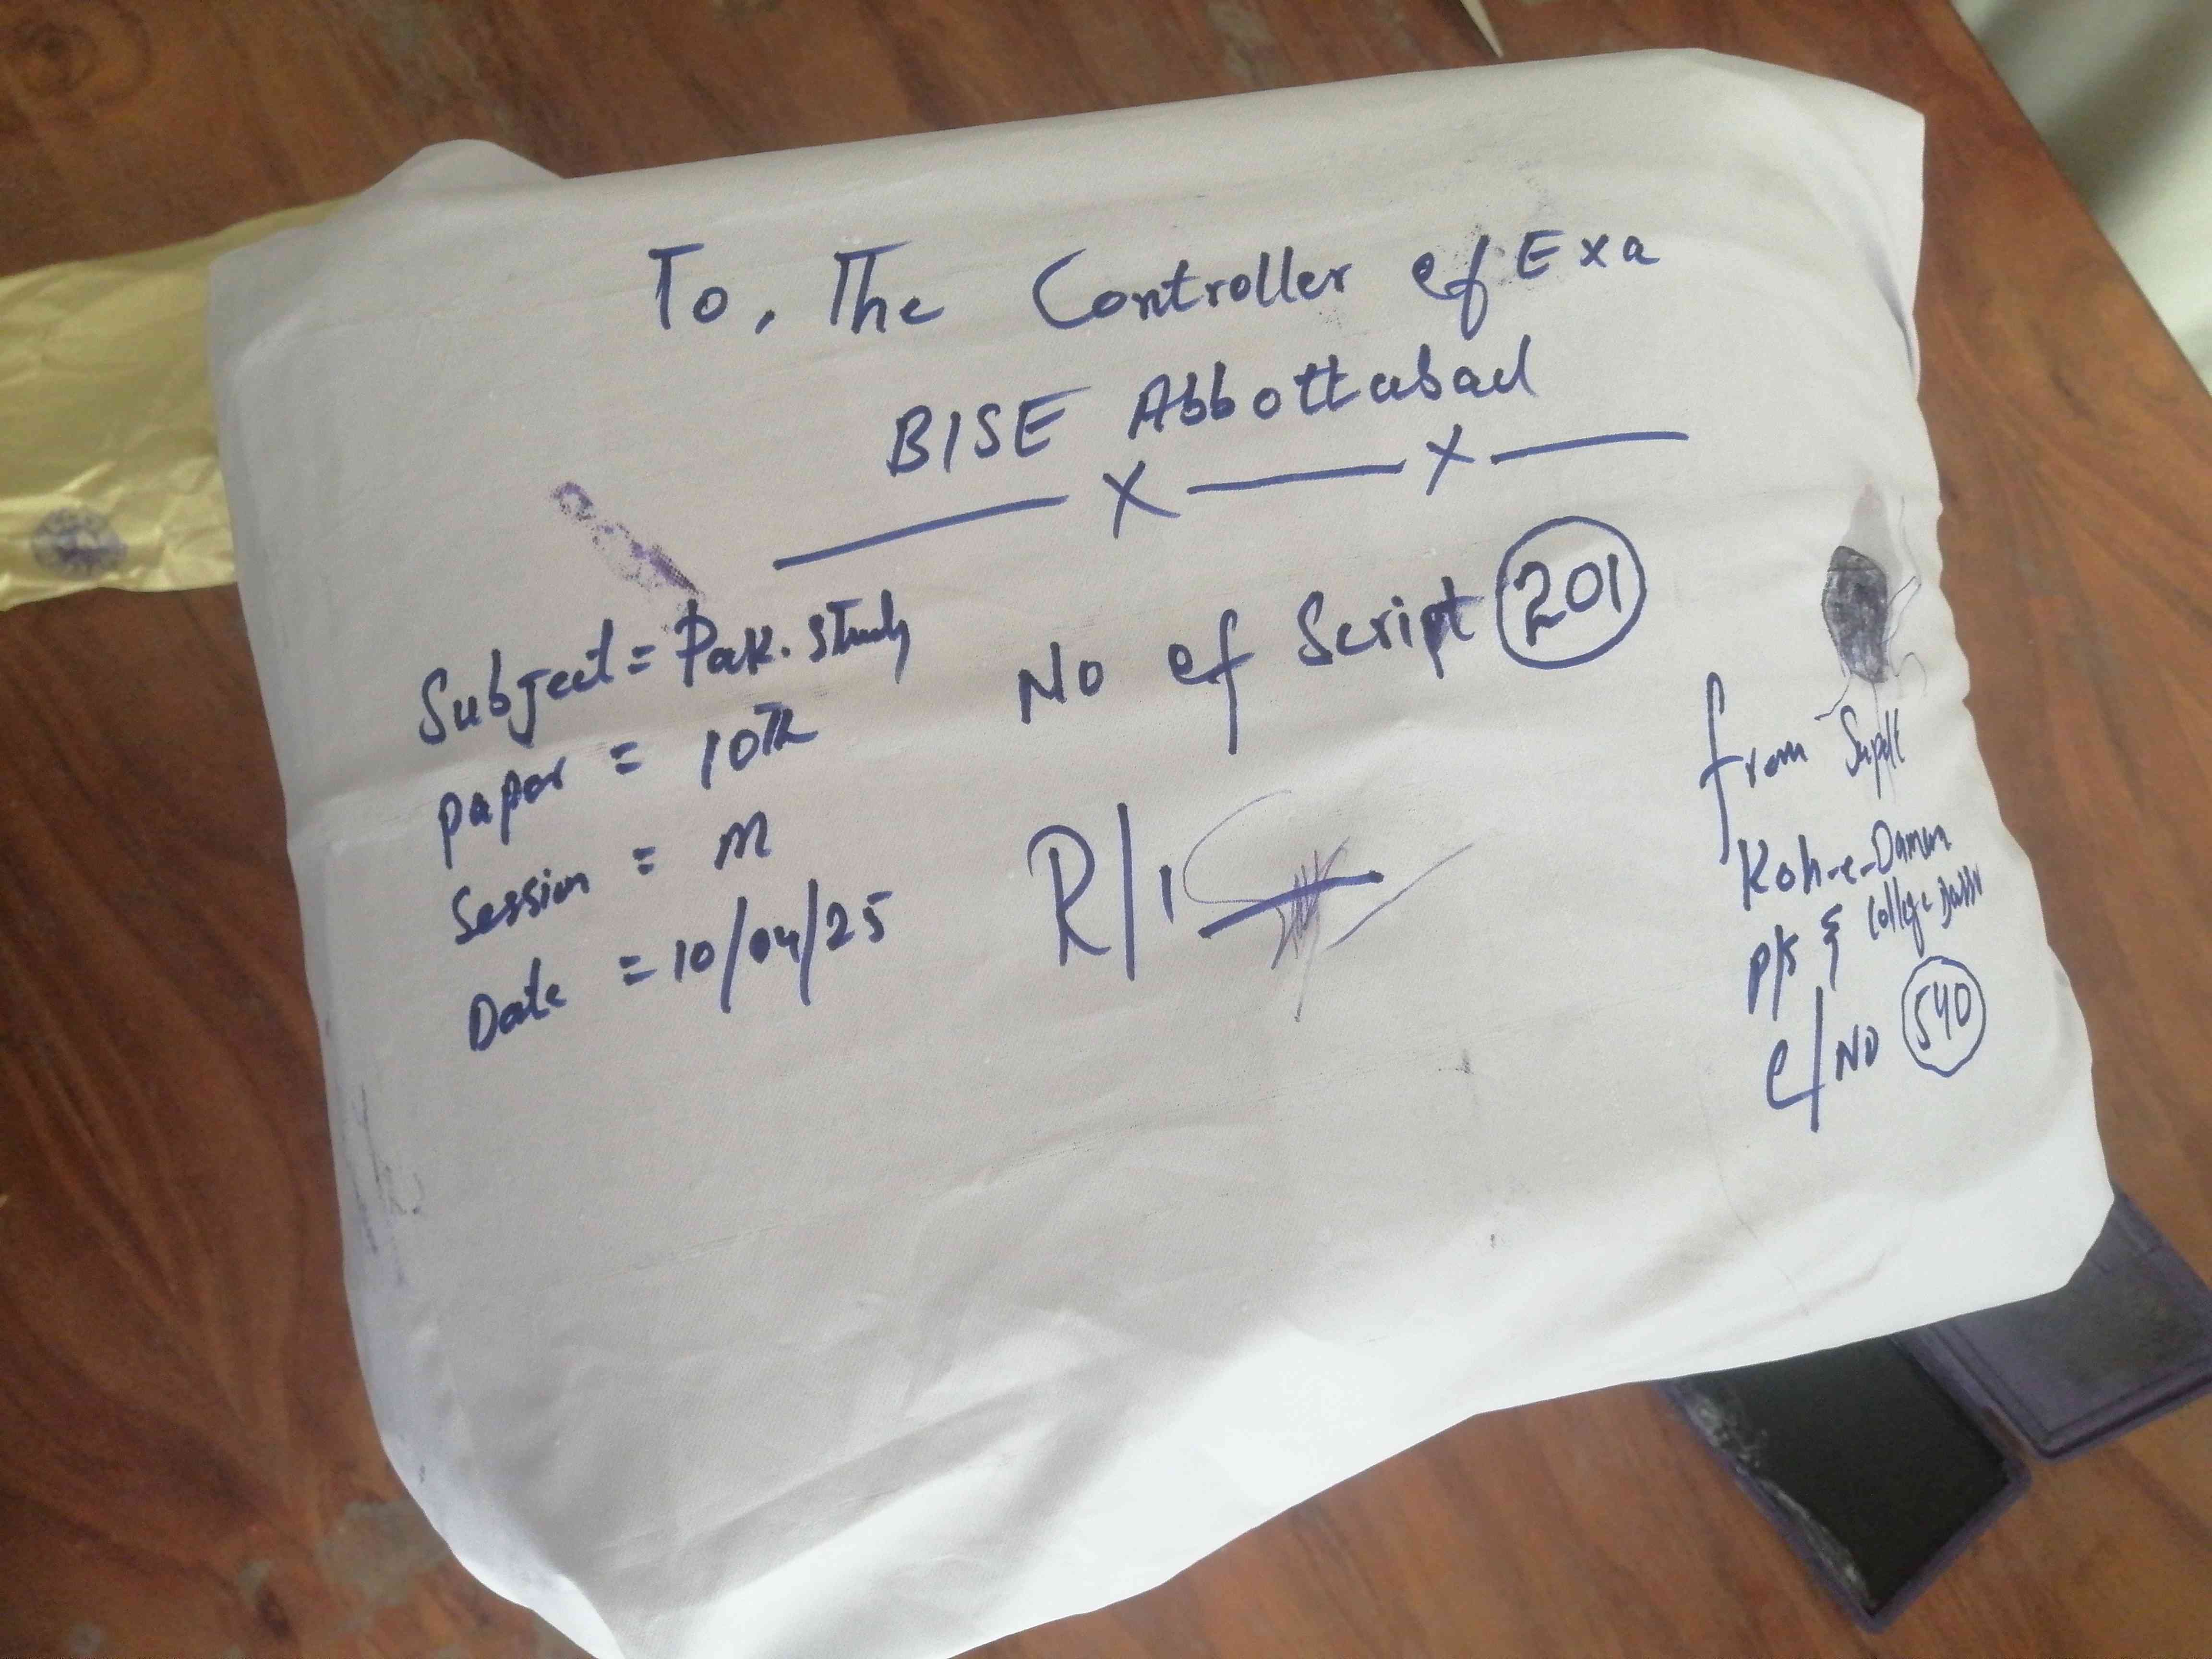 To, The Controller of Exa
BISE Abbottabad
Subject = Pak. Study
No of Script 201
paper = 10Th
Session = M
Date = 10/04/25
R/I
from Supdt
Koh-e-Daman
P/S & College
C/NO 540